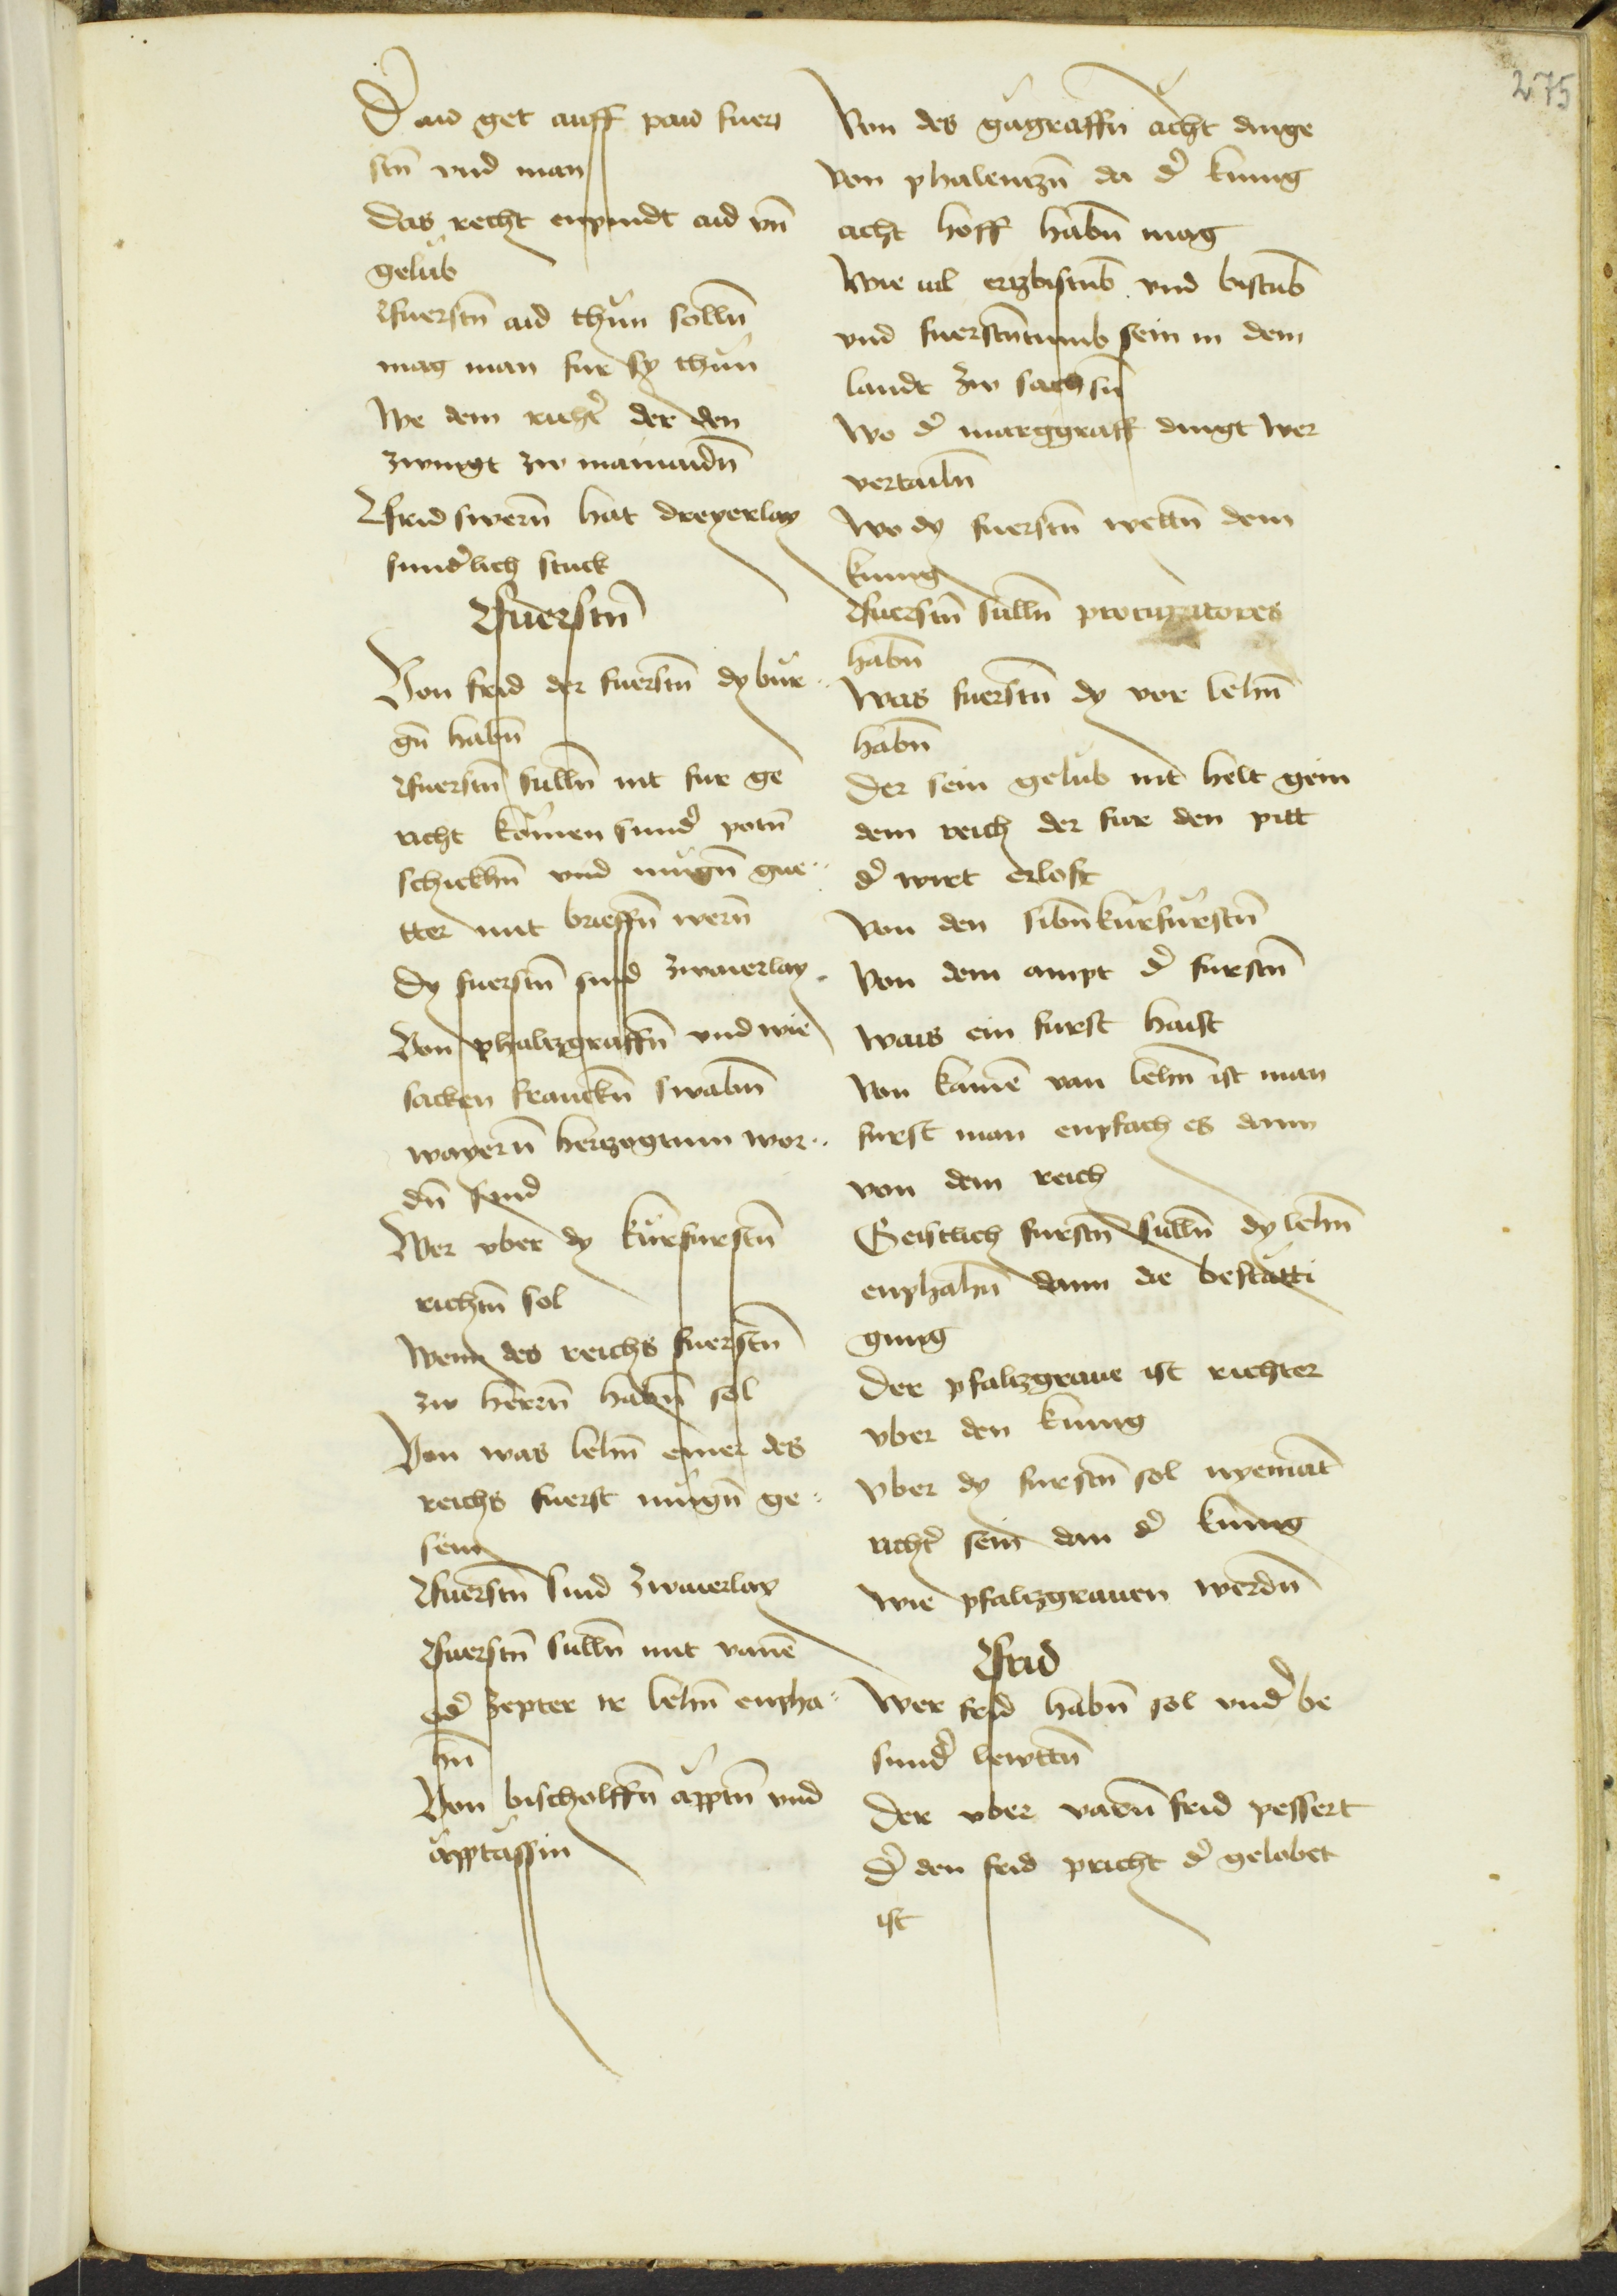 275
D aid get auff paid fuer
stn̄ vnd man
Das recht enpindt aid vn̄
gelub
Ffuerstn̄ aid thun solln̄
mag man fur sy thun
We dem richt͛ der den
zwingt zw mainaidn̄
Ffrid swern̄ hat dreyerlay
sund͛lich stuck
Ffuerstn̄
Von frid der fuerstn̄ dy bur
gn̄ habn̄
Ffuerstn̄ sulln̄ nit fur ge
richt komen sund͛ potn̄
schickhn̄ vnd mugn̄ gue
tter mit brieffn̄ wern̄
Dy fuerstn̄ sind zwaierlay
Von phaltzgraffn̄ vnd wie
sacken franckn̄ swabn̄
wayern̄ hertzogtum wor
dn̄ sind
Wer vber dy kurfurstn̄
richtn̄ sol
Wenn des reichs fuerstn̄
zw herrn̄ habn̄ sol
Von was lehn̄ einer des
reichs fuerst mugn̄ ge
sein
Ffuerstn̄ sind zwaierlay
Ffuerstn̄ sulln̄ mit vanē
od͛ zepter ir lehn̄ enpha
hn̄
Von bischolffn̄ apptn̄ vnd
apptassin
Von des gugraffn̄ acht dinge
Von phalentzn̄ da d͛ kunig
acht hoff habn̄ mag
Wie uil ertzbistub vnd bistub
vnd fuerstntumb sein in dem
landt zw sachsn̄
Wo d͛ marggraff dingt wer
vertailn̄
Wo dy fuerstn̄ wettn̄ dem
kunig
Ffuerstn̄ sulln̄ procuratores
habn̄
Was fuerstn̄ dy vor lehn̄
habn̄
Der sein gelub nit helt gein
dem reich der fur den pitt
d͛ wirt erlost
Von den sibn̄ kurfurstn̄
Von dem ampt d͛ furstn̄
Wais ein furst haist
Von kainē van lehn̄ ist man
furst man enpfach es dann
von dem reich
Geistlich furstn̄ sulln̄ dy lehn̄
enphahn̄ dann die bestatti
gung
Der pfaltzgraue ist richter
vber den kunig
Vber dy furstn̄ sol nyemāt
richt͛ sein dan d͛ kunig
Wie pfaltzgrauen werdn̄
Ffrid
Wer frid habn̄ sol vnd͛ be
sund͛ lewttn̄
Der vber vadn̄ frid pessert
D͛ den frid pricht d͛ gelobet
ist